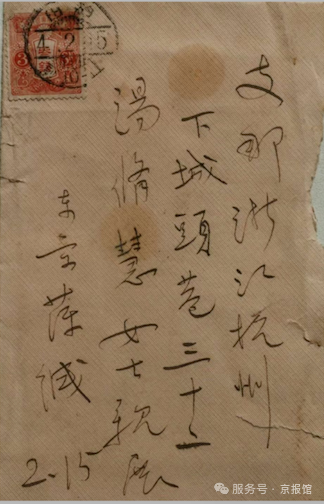 支那浙江杭州
下城頭巷三十二
湯脩慧女士親展
東京萍緘
2.15
服务号 · 京报馆